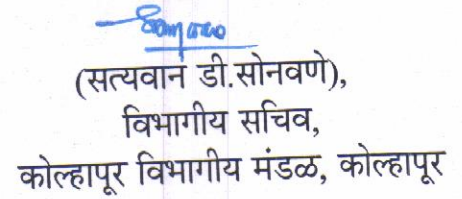 (सत्यवान डी.सोनवणे),
विभागीय सचिव,
कोल्हापूर विभागीय मंडळ, कोल्हापूर